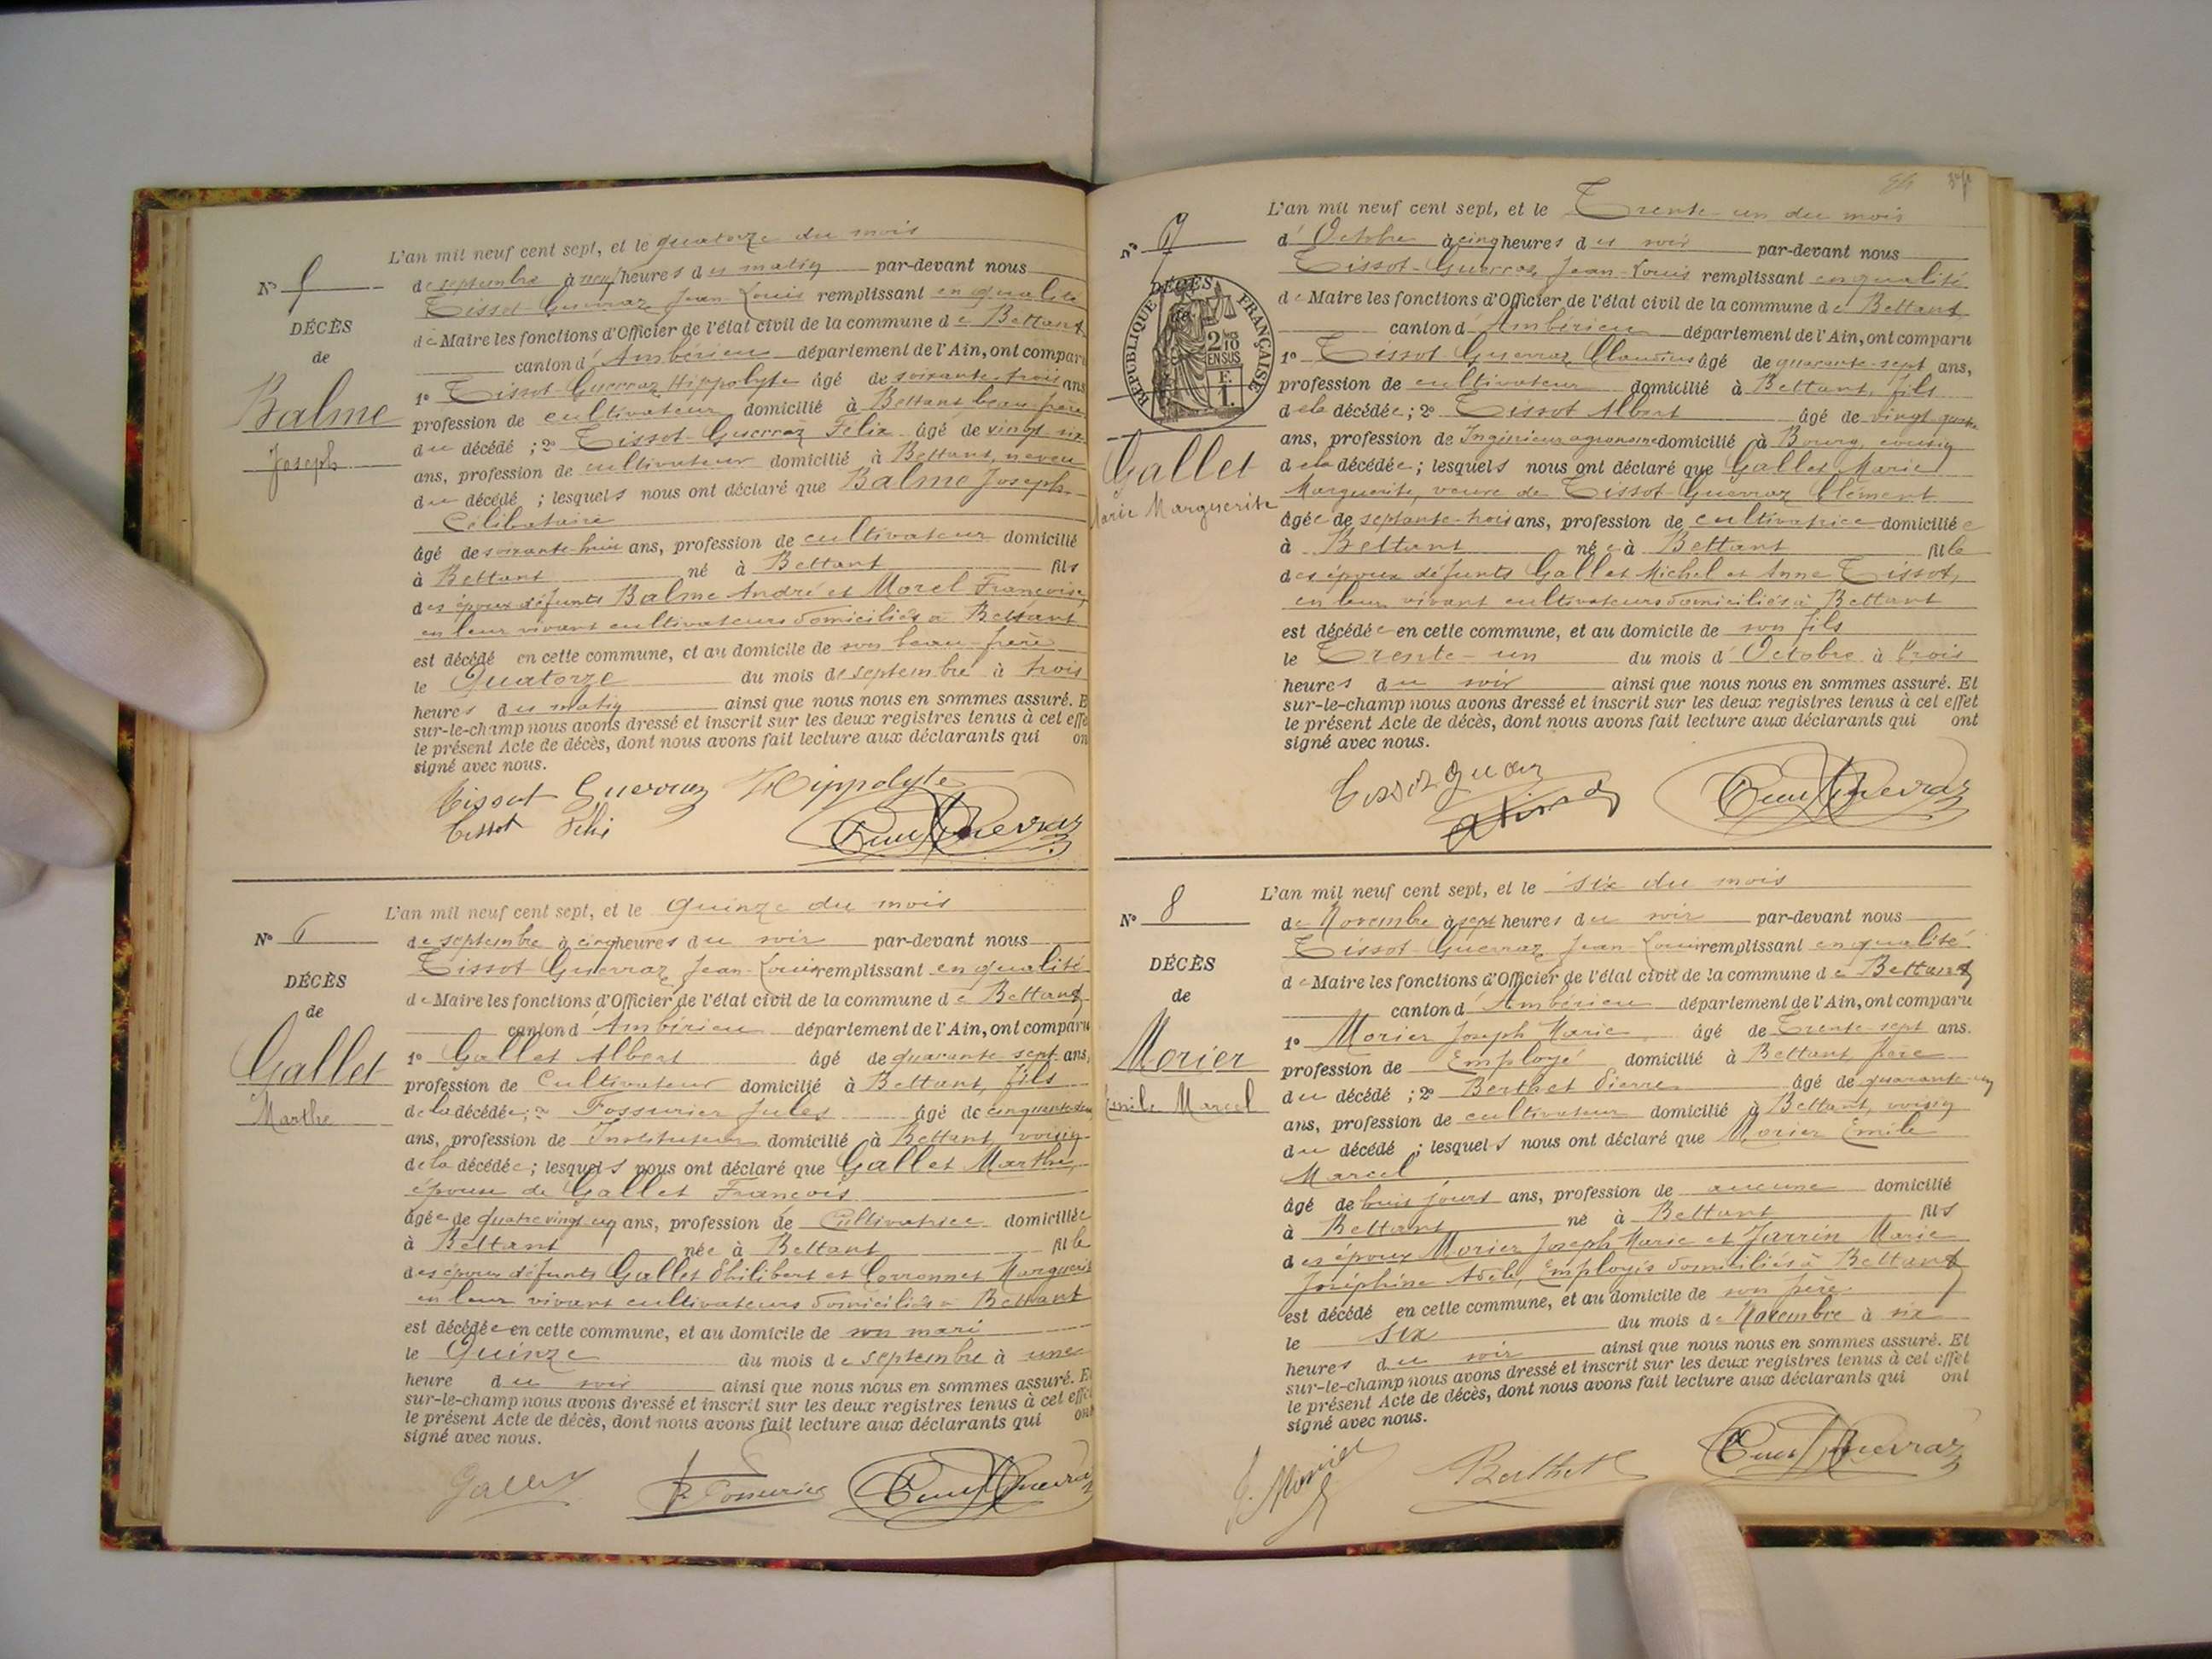 L'an mil neuf cent sept, et le quatorze du mois
N° 5
de septembre à neuf heures du matin par-devant nous
Tissot-Guerraz Jean-Louis remplissant en qualité
DÉCÈS
de Maire les fonctions d'Officier de l'état civil de la commune de Bettant
de
canton d'Ambérieu département de l'Ain, ont comparu
Balme
Joseph
1° Tissot-Guerraz Hippolyte âgé de soixante-trois ans
profession de cultivateur domicilié à Bettant, beau-frère
du décédé ; 2° Tissot-Guerraz Félix âgé de vingt-six
ans, profession de cultivateur domicilié à Bettant, neveu
du décédé ; lesquels nous ont déclaré que Balme Joseph
Célibataire
âgé de soixante-huit ans, profession de cultivateur domicilié
à Bettant né à Bettant fils
des époux défunts Balme André et Morel Françoise,
en leur vivant cultivateurs domiciliés à Bettant
est décédé en cette commune, et au domicile de son beau-frère
le Quatorze du mois de septembre à trois
heures du matin ainsi que nous nous en sommes assuré. E
sur-le-champ nous avons dressé et inscrit sur les deux registres tenus à cet effe
le présent Acte de décès, dont nous avons fait lecture aux déclarants qui on
signé avec nous.
Tissot Guerraz Hippolyte
Tissot Féli
N° 6
L'an mil neuf cent sept, et le quinze du mois
de septembre à cinq heures du soir par-devant nous
Tissot-Guerraz Jean-Louis remplissant en qualité
DÉCÈS
de Maire les fonctions d'Officier de l'état civil de la commune de Bettant
de
canton d'Ambérieu département de l'Ain, ont comparu
Gallet
Marthe
1° Gallet Albert âgé de quarante-sept ans,
profession de Cultivateur domicilié à Bettant, fils
de la décédée ; 2° Fossurier Jules âgé de
ans, profession de Instituteur domicilié à Bettant, voisin
de la décédée ; lesquels nous ont déclaré que Gallet Marthe,
épouse de Gallet François
âgée de quatre vingt un ans, profession de Cultivatrice domiciliée
à Bettant née à Bettant fille
des époux défunts Gallet Philibert et Corronnet Marguerit
en leur vivant cultivateurs domiciliés à Bettant
est décédée en cette commune, et au domicile de son mari
le Quinze du mois de septembre à une
heure du soir ainsi que nous nous en sommes assuré. E
sur-le-champ nous avons dressé et inscrit sur les deux registres tenus à cet effe
le présent Acte de décès, dont nous avons fait lecture aux déclarants qui ont
signé avec nous.
Gallet
Fossurier
L'an mil neuf cent sept, et le Trente-un du mois
N° 7
d'Octobre à cinq heures du soir par-devant nous
Tissot-Guerraz Jean-Louis remplissant en qualité
DÉCÈS
de
RÉPUBLIQUE FRANÇAISE
2/10 EN SUS
F. 1.
de Maire les fonctions d'Officier de l'état civil de la commune de Bettant
canton d'Ambérieu département de l'Ain, ont comparu
1° Tissot Guerraz Claudius âgé de quarante-sept ans,
profession de cultivateur domicilié à Bettant, fils
de la décédée ; 2° Tissot Albert âgé de vingt
ans, profession de Ingénieur agronome domicilié à Bourg, cousin
de la décédée ; lesquels nous ont déclaré que Gallet Marie
Gallet
Marie Marguerite
Marguerite, veuve de Tissot-Guerraz Clément
âgée de septante-trois ans, profession de cultivatrice domiciliée
à Bettant née à Bettant fille
des époux défunts Gallet Michel et Anne Tissot,
en leur vivant cultivateurs domiciliés à Bettant
est décédée en cette commune, et au domicile de son fils
le Trente-un du mois d'Octobre à trois
heures du soir ainsi que nous nous en sommes assuré. Et
sur-le-champ nous avons dressé et inscrit sur les deux registres tenus à cet effet
le présent Acte de décès, dont nous avons fait lecture aux déclarants qui ont
signé avec nous.
L'an mil neuf cent sept, et le six du mois
N° 8
de Novembre à sept heures du soir par-devant nous
Tissot-Guerraz Jean-Louis remplissant en qualité
DÉCÈS
de Maire les fonctions d'Officier de l'état civil de la commune de Bettant
de
canton d'Ambérieu département de l'Ain, ont comparu
Morier
Emile Marcel
1° Morier Joseph Marie âgé de Trente-sept ans.
profession de Employé domicilié à Bettant père
du décédé ; 2° Berthet Pierre âgé de quarante-un
ans, profession de cultivateur domicilié à Bettant, voisin
du décédé ; lesquels nous ont déclaré que Morier Emile
Marcel
âgé de huit jours ans, profession de aucune domicilié
à Bettant né à Bettant fils
des époux Morier Joseph Marie et Jarrin Marie
Joséphine Adèle, Employés domiciliés à Bettant
est décédé en cette commune, et au domicile de son père
le six du mois de Novembre à six
heures du soir ainsi que nous nous en sommes assuré. Et
sur-le-champ nous avons dressé et inscrit sur les deux registres tenus à cet effet
le présent Acte de décès, dont nous avons fait lecture aux déclarants qui ont
signé avec nous.
J. Morier
Berthet